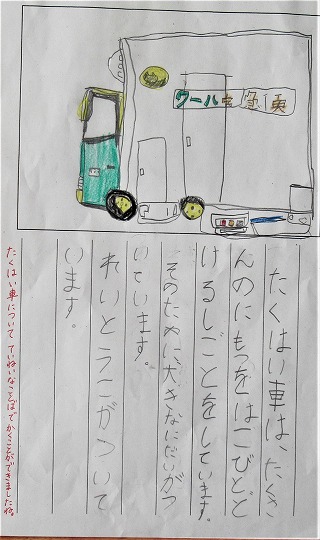 クール
たくはい車は、たくさ
んのにもつをはこびとど
けるしごとをしています。
そのために、大きなにだいがつ
いています。
れいとうこがついて
います。
たくはい車について ていねいなことばで かくことができましたね。